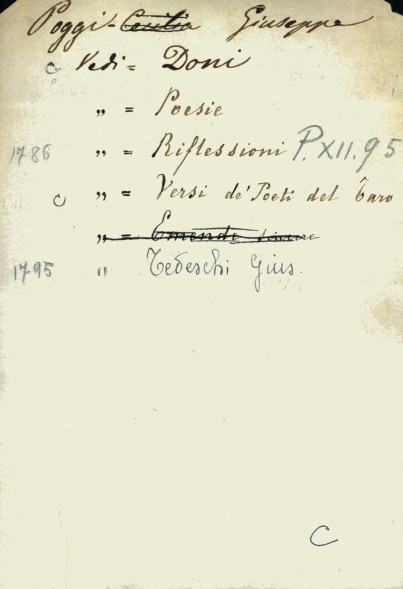 Poggi - Cecilia Giuseppe
c Vedi = Doni
" = Poesie
1786 " = Riflessioni P.XII.95
c " = Versi de' Poeti del Taro
" = Emende sincere
1795 " Tedeschi Gius.
C